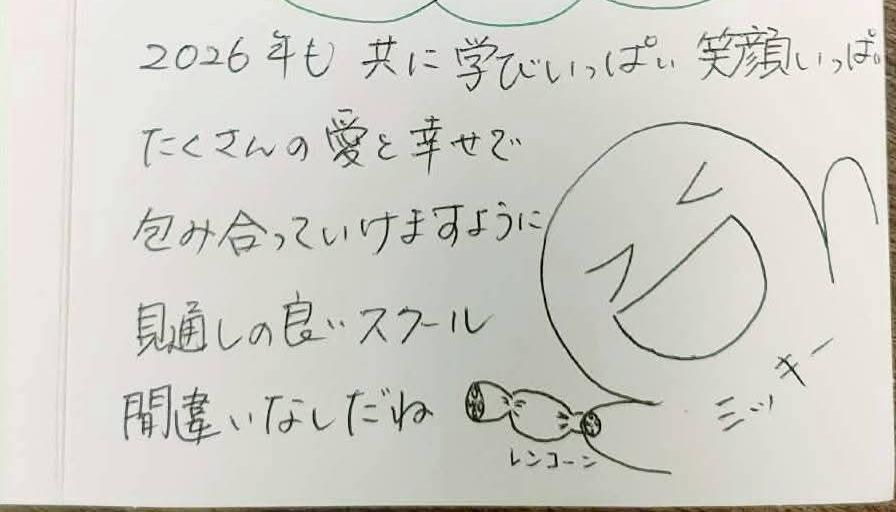 2026年も 共に 学びいっぱい 笑顔いっぱい
たくさんの愛と幸せで
包み合っていけますように
見通しの良いスクール
間違いなしだね
ミッキー
レンコーン